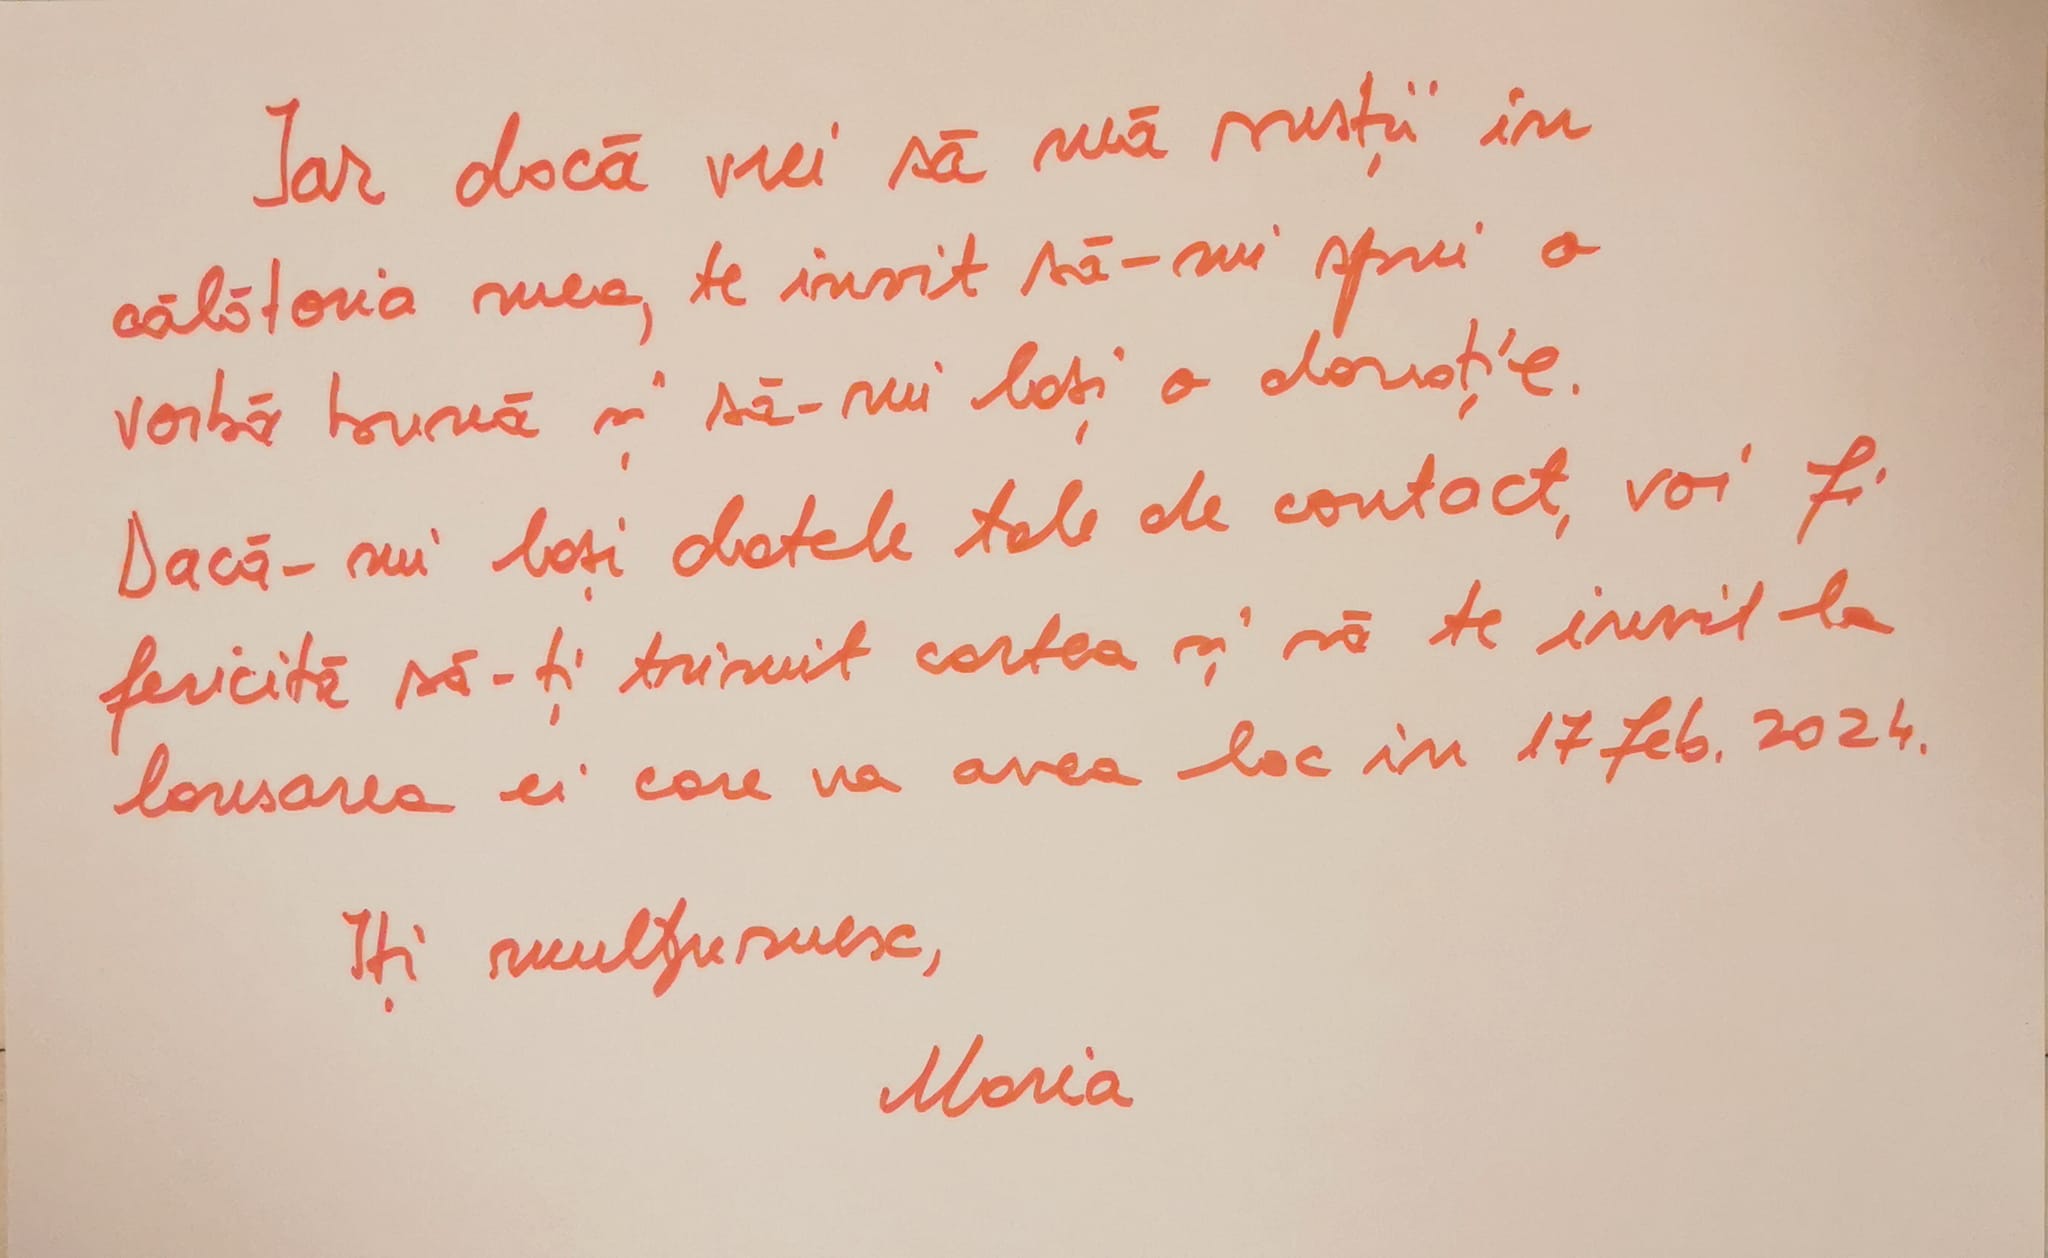 Iar dacă vrei să mă susții in
călătoria mea, te invit să-mi spui o
vorbă bună și să-mi lași o donație.
Dacă-mi lași datele tale de contact, voi fi
fericită să-ți trimit cartea și să te invit la
lansarea ei care va avea loc in 17 feb. 2024.
Iți mulțumesc,
Maria